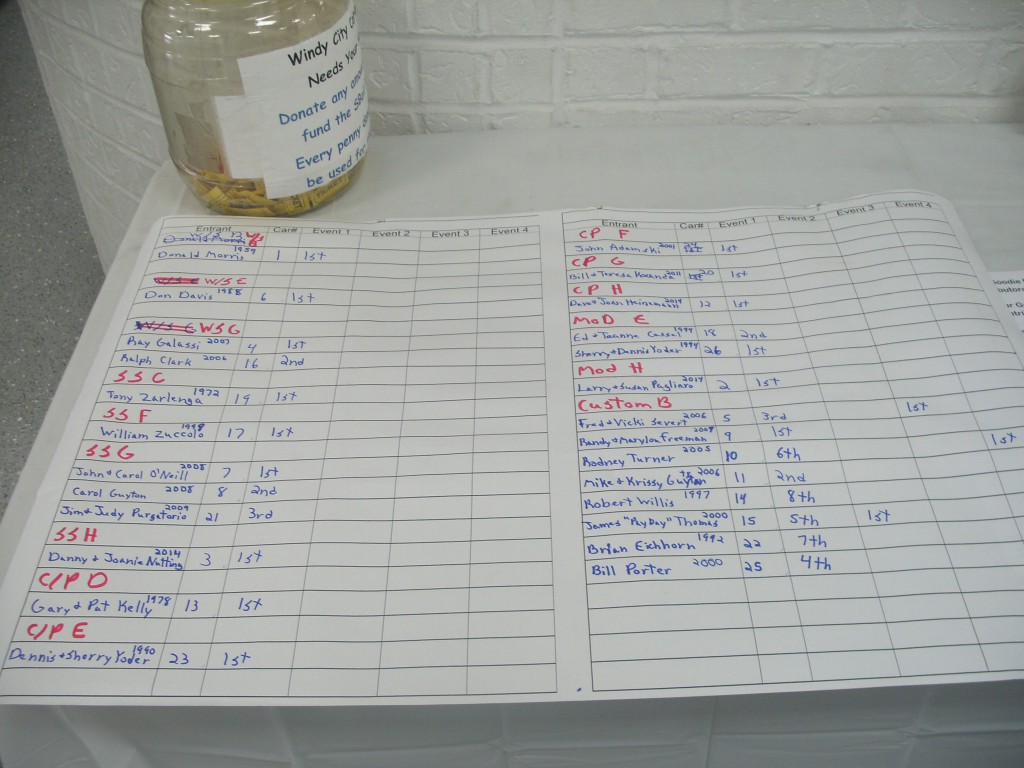 Windy City
Needs Your
Donate any
fund the
Every penny
be used for
Entrant Car# Event 1 Event 2 Event 3 Event 4
Donald Morris 1959 1 1st
W/S E
Don Davis 1988 6 1st
W/S G
Ray Galassi 2007 4 1st
Ralph Clark 2006 16 2nd
SS C
Tony Zarlenga 1972 19 1st
SS F
William Zuccolo 1998 17 1st
SS G
John & Carol O'Neill 2005 7 1st
Carol Guyton 2008 8 2nd
Jim & Judy Purgatorio 2009 21 3rd
SS H
Danny & Joanie Nutting 2014 3 1st
C/P D
Gary & Pat Kelly 1978 13 1st
C/P E
Dennis & Sherry Yoder 1990 23 1st
Entrant Car# Event 1 Event 2 Event 3 Event 4
CP F
John Adamski 2001 1st
CP G
Bill & Teresa 2011 20 1st
CP H
Dave & Joan Heinemann 2019 12 1st
MOD E
Ed & Joanne Cassel 1994 18 2nd
Sherry & Dennis Yoder 1994 26 1st
Mod H
Larry & Susan Pagliaro 2019 2 1st
Custom B
Fred & Vicki Severt 2006 5 3rd 1st
Randy & Marylou Freeman 2009 9 1st 1st
Rodney Turner 2005 10 6th
Mike & Krissy Guyton 2006 11 2nd
Robert Willis 1997 14 8th
James "PayDay" Thomas 2000 15 5th 1st
Brian Eichhorn 1992 22 7th
Bill Porter 2000 25 4th